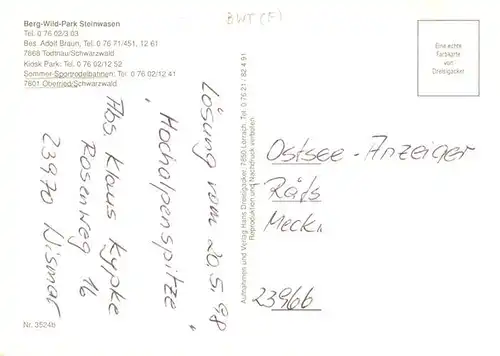 Berg-Wild-Park Steinwasen
Tel. 0 76 02/3 03
Bes. Adolf Braun, Tel. 0 76 71/451, 12 61
7868 Todtnau/Schwarzwald
Kiosk Park: Tel. 0 76 02/12 52
Sommer-Sportrodelbahnen: Tel. 0 76 02/12 41
7801 Oberried/Schwarzwald
BWT (F)
Eine echte
Farbkarte
von
Dreisigacker
Lösung vom 20.5.98
Hochalpenspitze
Abs. Klaus Kypke
Rosenweg 16
23970 Wismar
Aufnahmen und Verlag Hans Dreisigacker, 7850 Lörrach, Tel. 0 76 21 / 82 4 91
Reproduktion und Nachdruck verboten
Ostsee-Anzeiger
Räts
Meckl.
23966
Nr. 3524b